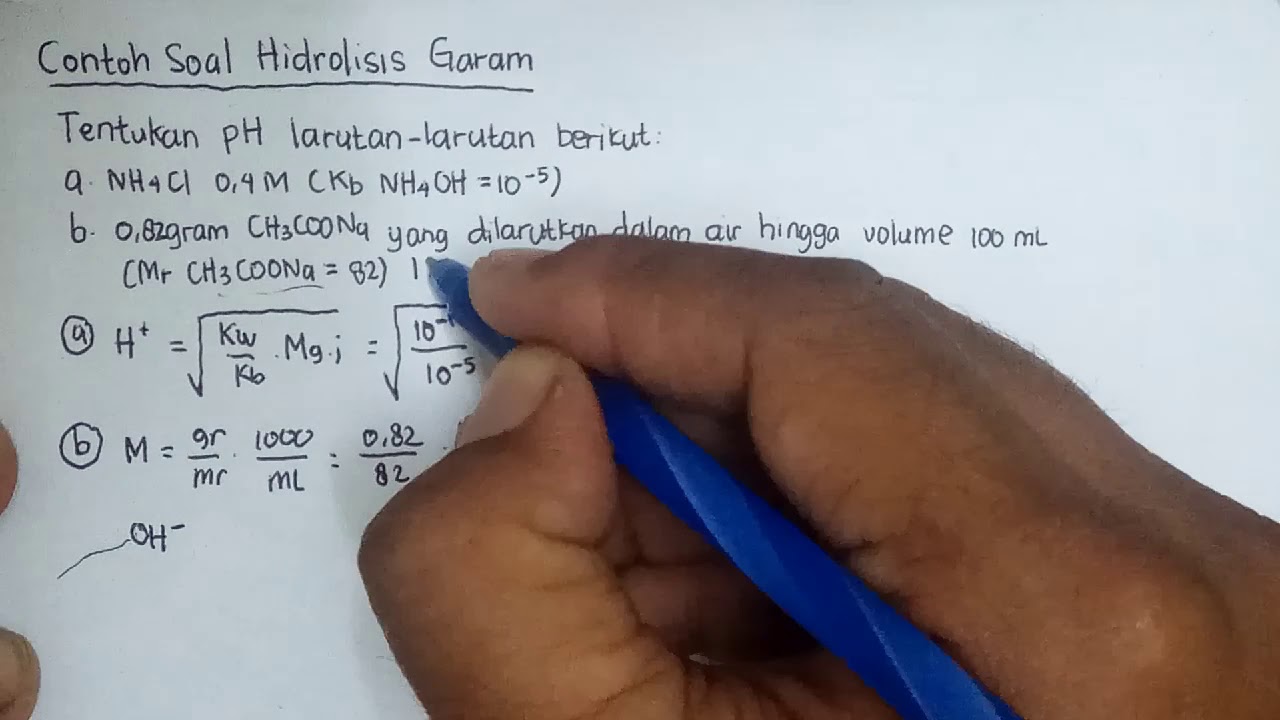 Contoh Soal Hidrolisis Garam
Tentukan pH larutan-larutan berikut:
a. NH4Cl 0,4 M (Kb NH4OH = 10⁻⁵)
b. 0,82gram CH3COONa yang dilarutkan dalam air hingga volume 100 mL
(Mr CH3COONa = 82)
ⓐ H⁺ = √(Kw/Kb . Mg.j) = √(10⁻/10⁻⁵
ⓑ M = gr/mr . 1000/mL = 0,82/82 .
OH⁻